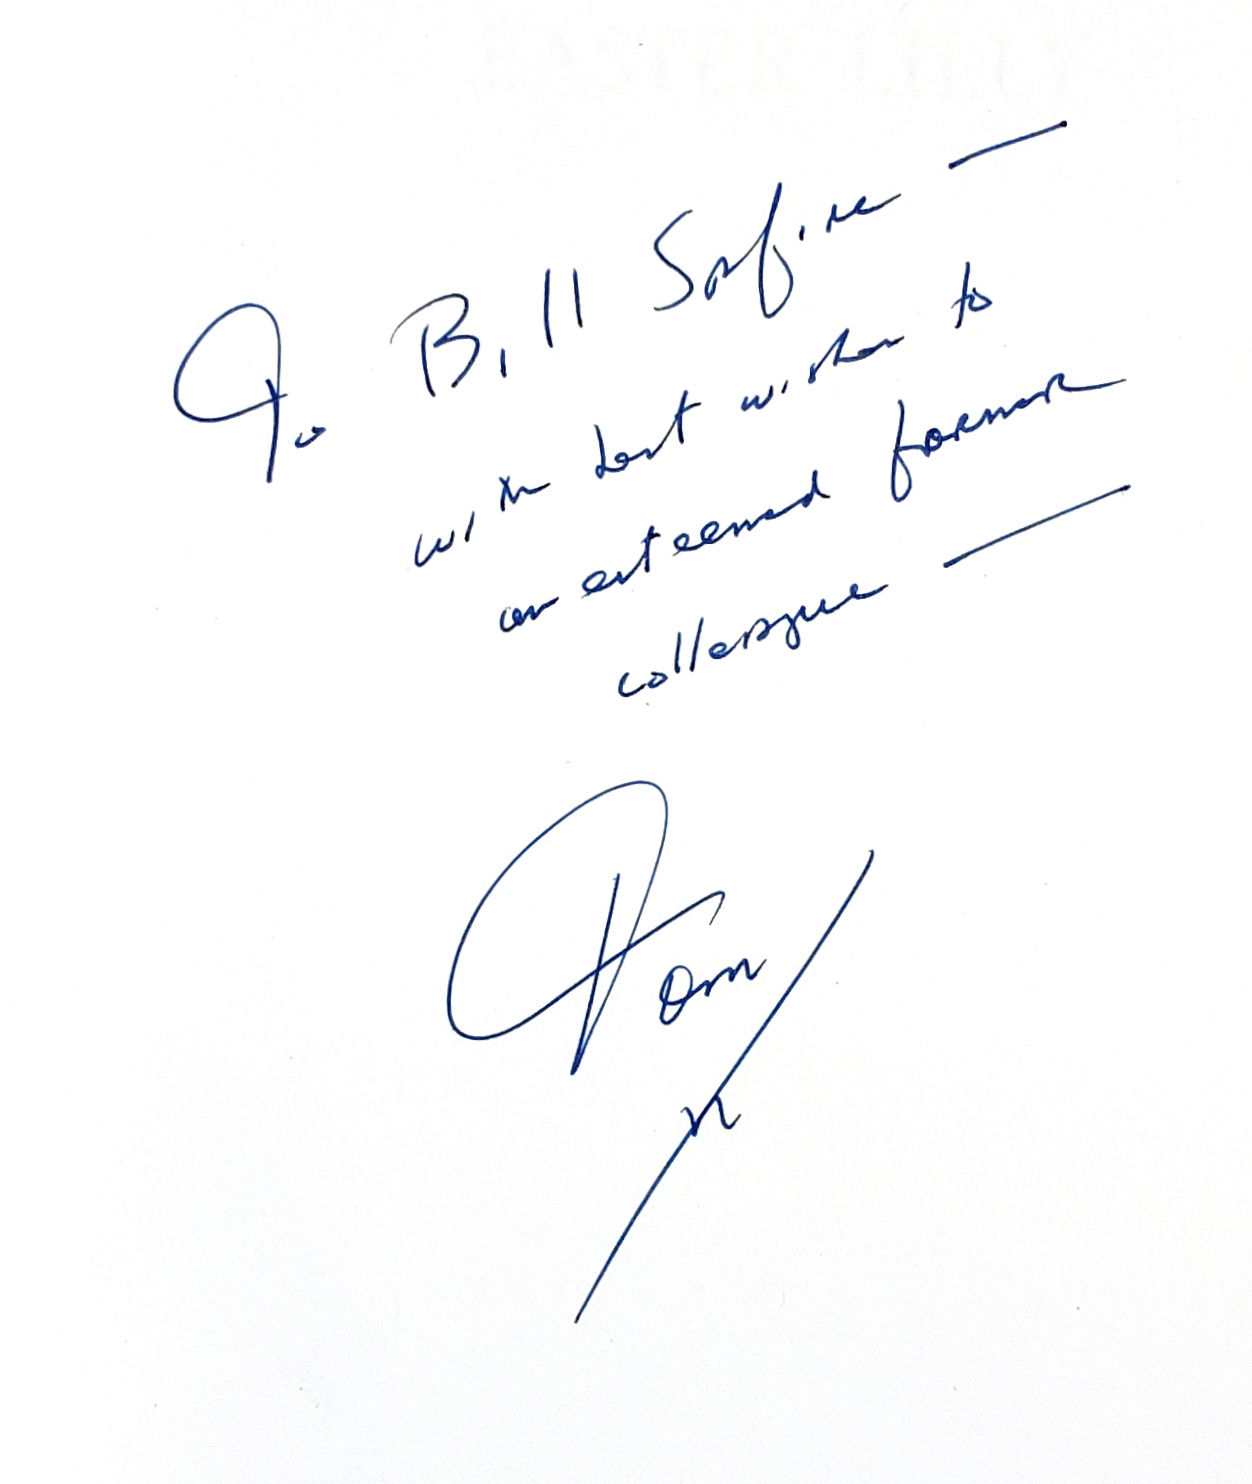 To Bill Safire —
with best wishes to
an esteemed former
colleague —
Tom